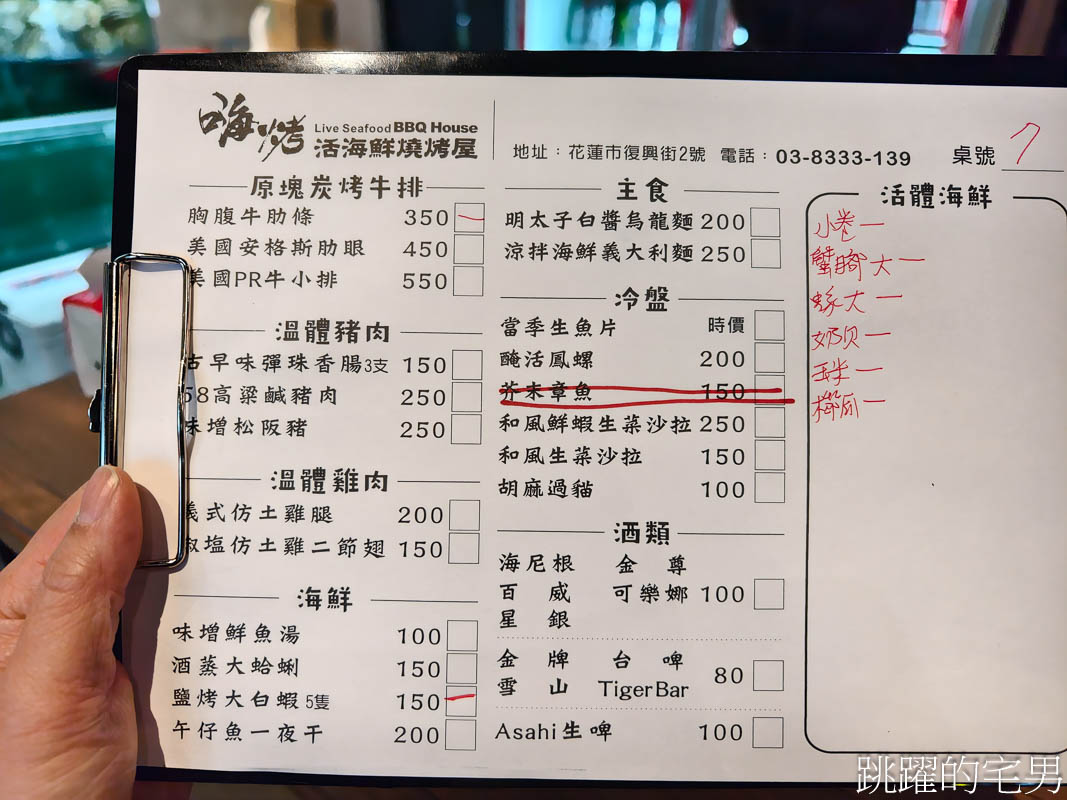 嗨烤
Live Seafood BBQ House
活海鮮燒烤屋
地址：花蓮市復興街2號 電話：03-8333-139
桌號 7
原塊炭烤牛排
胸腹牛肋條 350 一
美國安格斯肋眼 450
美國PR牛小排 550
溫體豬肉
古早味彈珠香腸3支 150
58高粱鹹豬肉 250
味增松阪豬 250
溫體雞肉
義式仿土雞腿 200
椒塩仿土雞二節翅 150
海鮮
味增鮮魚湯 100
酒蒸大蛤蜊 150
鹽烤大白蝦 5隻 150 一
午仔魚一夜干 200
主食
明太子白醬烏龍麵 200
涼拌海鮮義大利麵 250
冷盤
當季生魚片 時價
醃活鳳螺 200
芥末章魚 150
和風鮮蝦生菜沙拉 250
和風生菜沙拉 150
胡麻過貓 100
酒類
海尼根 金尊
百威 可樂娜 100
星銀
金牌 台啤
雪山 TigerBar 80
Asahi生啤 100
活體海鮮
小卷一
蟹腳大一
蠔大一
奶貝一
玉米一
跳躍的宅男